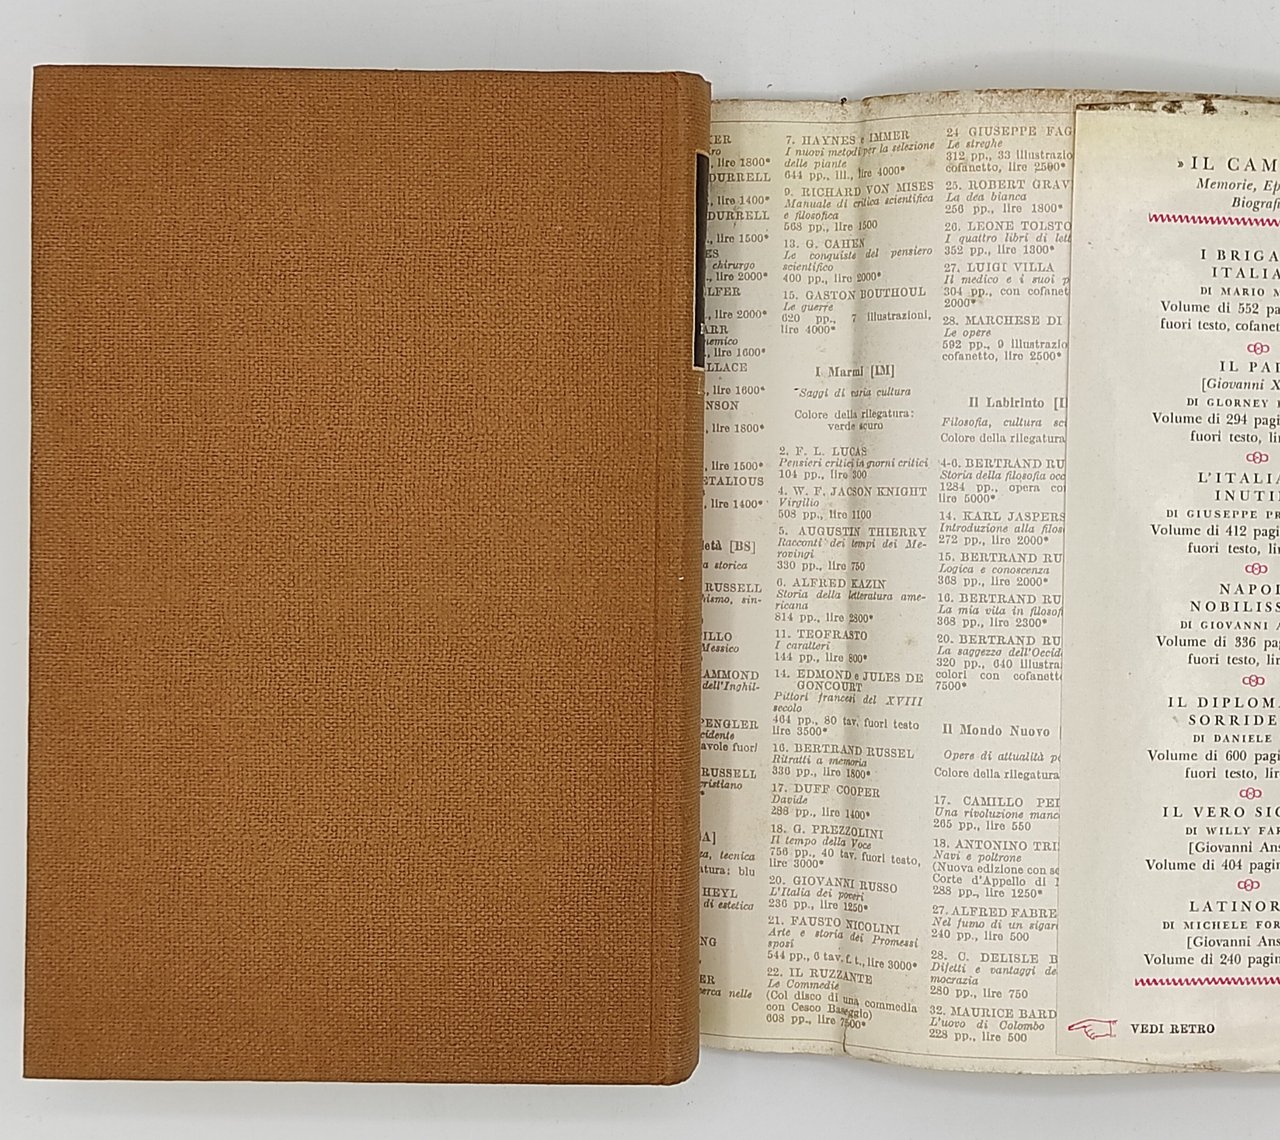 , lire 1800*
DURRELL
, lire 1400*
DURRELL
, lire 1500*
chirurgo
, lire 2000*
, lire 2000*
, lire 1600*
, lire 1600*
, lire 1800*
, lire 1500*
, lire 1400*
[BS]
storica
RUSSELL
Messico
dell'Inghil-
RUSSELL
tecnica
blu
HEYL
di estetica
nelle
7. HAYNES e IMMER
I nuovi metodi per la selezione
delle piante
644 pp., ill., lire 4000*
9. RICHARD VON MISES
Manuale di critica scientifica
e filosofica
568 pp., lire 1500
13. G. CAHEN
Le conquiste del pensiero
scientifico
400 pp., lire 2000*
15. GASTON BOUTHOUL
Le guerre
620 pp., 7 illustrazioni,
lire 4000*
I Marmi [IM]
Saggi di varia cultura
Colore della rilegatura:
verde scuro
2. F. L. LUCAS
Pensieri critici in giorni critici
104 pp., lire 300
4. W. F. JACSON KNIGHT
Virgilio
508 pp., lire 1100
5. AUGUSTIN THIERRY
Racconti dei tempi dei Me-
rovingi
330 pp., lire 750
6. ALFRED KAZIN
Storia della letteratura ame-
ricana
814 pp., lire 2800*
11. TEOFRASTO
I caratteri
144 pp., lire 800*
14. EDMOND e JULES DE
GONCOURT
Pittori francesi del XVIII
secolo
464 pp., 80 tav. fuori testo
lire 3500*
16. BERTRAND RUSSEL
Ritratti a memoria
336 pp., lire 1800*
17. DUFF COOPER
Davide
288 pp., lire 1400*
18. G. PREZZOLINI
Il tempo della Voce
756 pp., 40 tav. fuori testo,
lire 3000*
20. GIOVANNI RUSSO
L'Italia dei poveri
236 pp., lire 1250*
21. FAUSTO NICOLINI
Arte e storia dei Promessi
sposi
544 pp., 6 tav. f. t., lire 3000*
22. IL RUZZANTE
Le Commedie
(Col disco di una commedia
con Cesco Baseggio)
608 pp., lire 7500*
24 GIUSEPPE FAG
Le streghe
312 pp., 33 illustrazio
cofanetto, lire 2500*
25. ROBERT GRAV
La dea bianca
256 pp., lire 1800*
26. LEONE TOLSTO
I quattro libri di lett
352 pp., lire 1300*
27. LUIGI VILLA
Il medico e i suoi p
304 pp., con cofanet
2000*
28. MARCHESE DI
Le opere
592 pp., 9 illustrazio
cofanetto, lire 2500*
Il Labirinto [I
Filosofia, cultura sci
Colore della rilegatura
4-6. BERTRAND RU
Storia della filosofia occ
1284 pp., opera co
lire 5000*
14. KARL JASPERS
Introduzione alla filos
272 pp., lire 2000*
15. BERTRAND RU
Logica e conoscenza
368 pp., lire 2000*
16. BERTRAND RU
La mia vita in filosof
368 pp., lire 2300*
20. BERTRAND RU
La saggezza dell'Occid
320 pp., 640 illustra
colori con cofanett
7500*
Il Mondo Nuovo
Opere di attualità po
Colore della rilegatura
17. CAMILLO PEL
Una rivoluzione manc
265 pp., lire 550
18. ANTONINO TRI
Navi e poltrone
(Nuova edizione con se
Corte d'Appello di
288 pp., lire 1250*
27. ALFRED FABRE
Nel fumo di un sigar
240 pp., lire 500
28. C. DELISLE B
Difetti e vantaggi de
mocrazia
280 pp., lire 750
32. MAURICE BARD
L'uovo di Colombo
228 pp., lire 500
» IL CAM
Memorie, Ep
Biografi
I BRIGA
ITALIA
DI MARIO M
Volume di 552 pa
fuori testo, cofanet
IL PAP
[Giovanni X
DI GLORNEY
Volume di 294 pagi
fuori testo, lir
L'ITALIA
INUTI
DI GIUSEPPE PR
Volume di 412 pagi
fuori testo, lir
NAPOL
NOBILISS
DI GIOVANNI A
Volume di 336 pag
fuori testo, lir
IL DIPLOMA
SORRIDE
DI DANIELE
Volume di 600 pagi
fuori testo, lir
IL VERO SIG
DI WILLY FAR
[Giovanni Ans
Volume di 404 pagin
LATINOR
DI MICHELE FOR
[Giovanni Ans
Volume di 240 pagin
VEDI RETRO